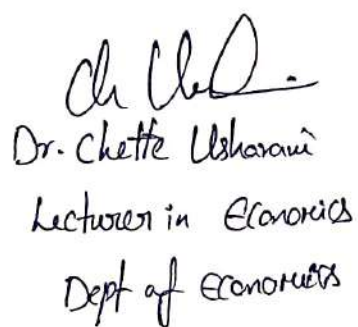 Dr. Chette Usharani
Lecturer in Economics
Dept of Economics